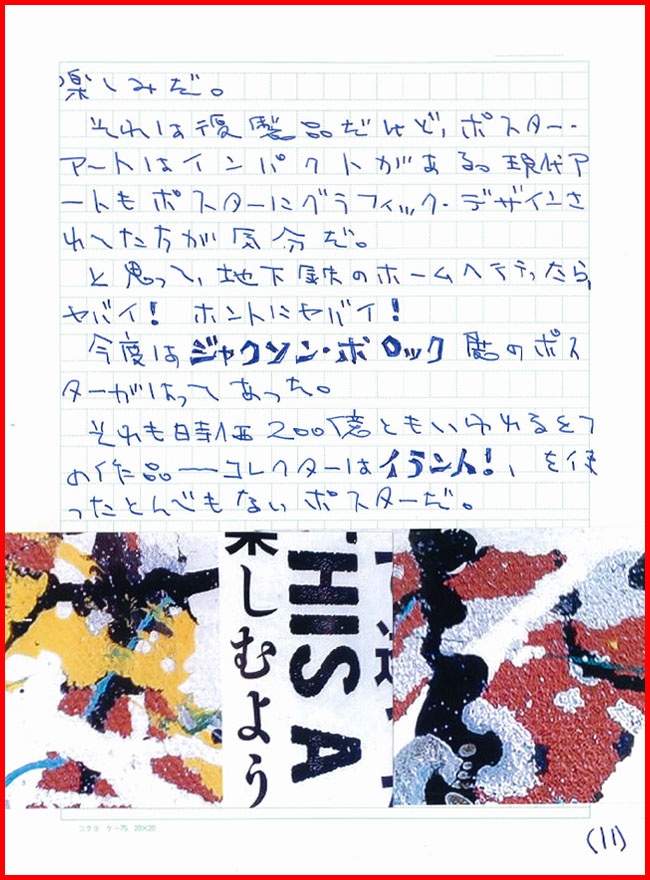 楽しみだ。
それは複製品だけど、ポスター・
アートはインパクトがある。現代ア
ートもポスターにグラフィック・デザインさ
れてた方が気分だ。
と思って、地下鉄のホームへ行ったら、
ヤバイ! ホントにヤバイ!
今度はジャクソン・ポロック展のポス
ターがはってあった。
それも時価200億ともいわれるその
の作品──コレクターはイラン人!、を使
ったとんでもないポスターだ。
楽しむよう
THIS A
コクヨ ケー75 20×20
(11)